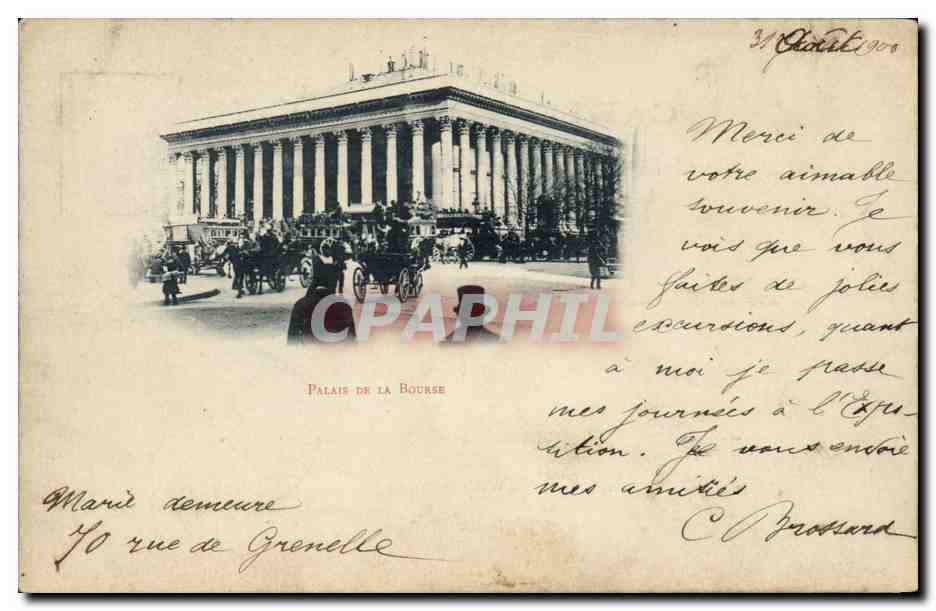 31 Août 1900
Merci de
votre aimable
souvenir. Je
vois que vous
faites de jolies
excursions, quant
à moi je passe
mes journées à l'Expo-
sition. Je vous envoie
mes amitiés
C Brossard
CPAPHIL
PALAIS DE LA BOURSE
Marie demeure
70 rue de Grenelle